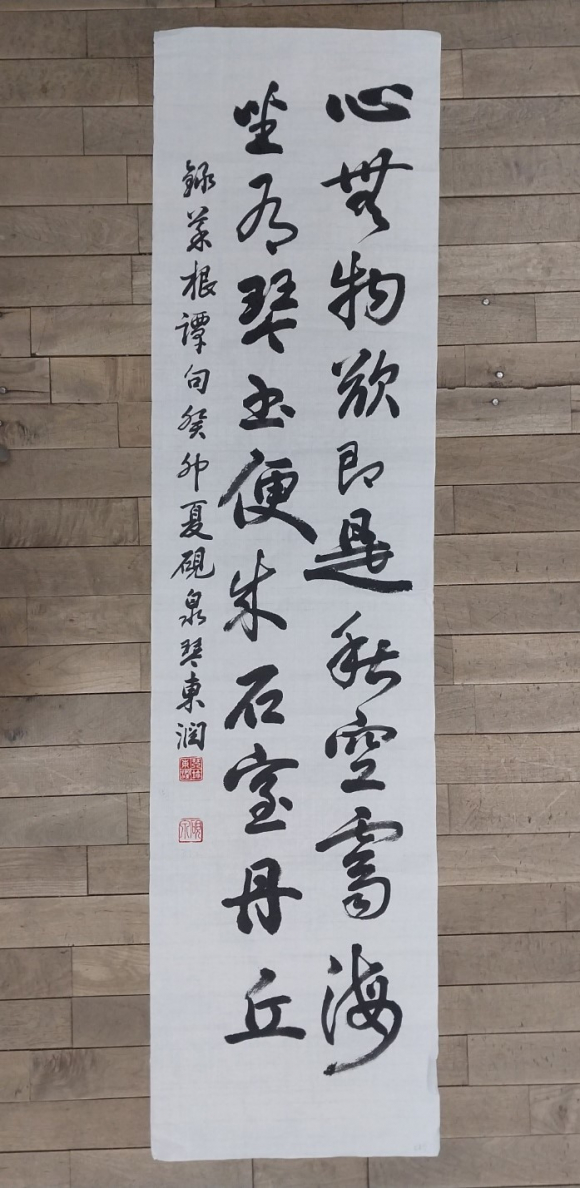 心無物欲即是秋空霽海
坐有琴書便成石室丹丘
錄菜根譚句癸卯夏硯泉琴東潤